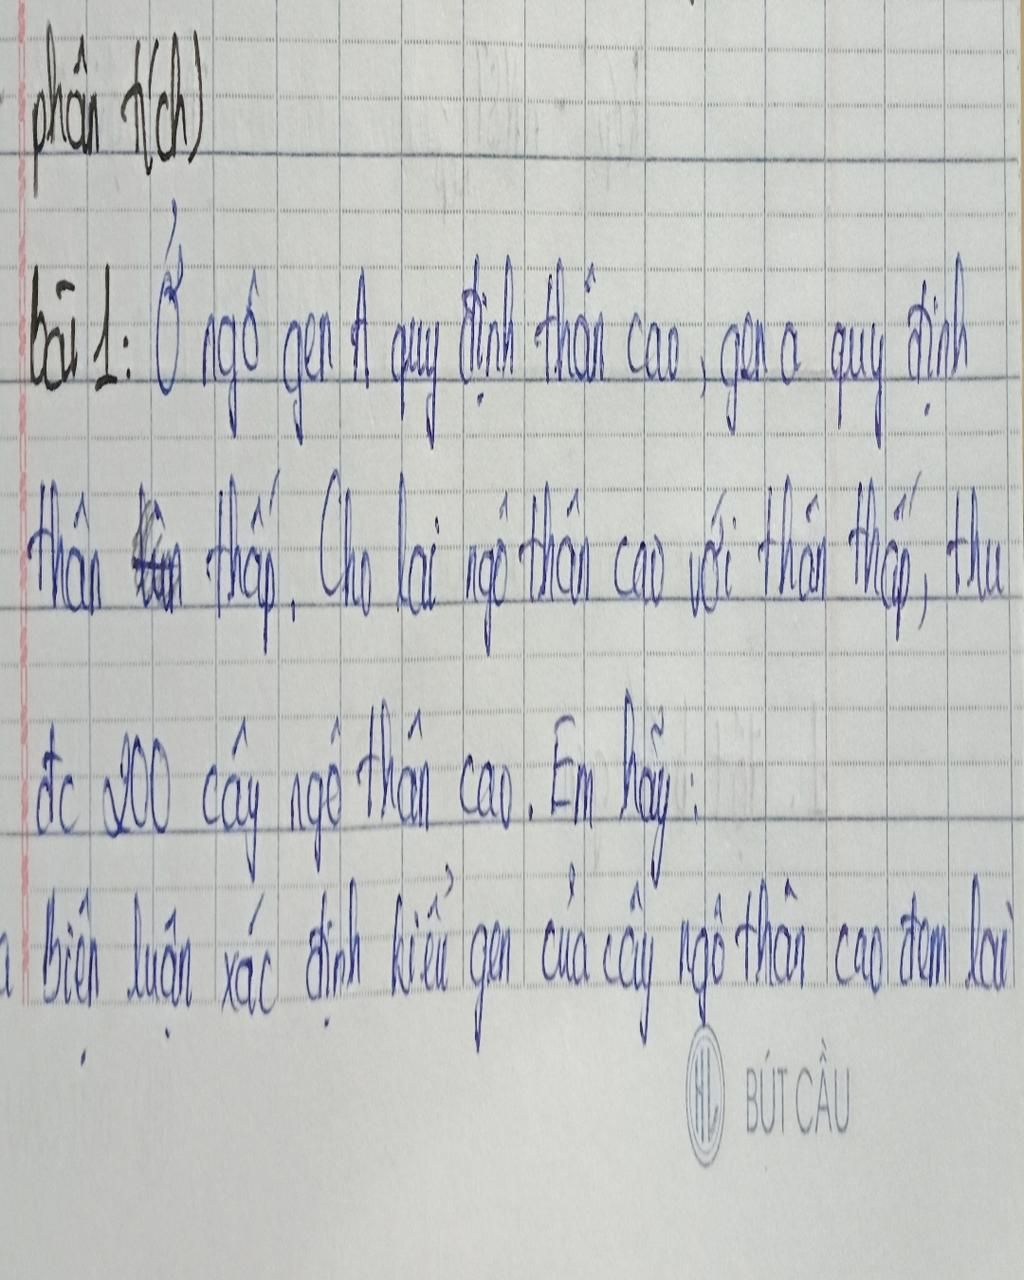 phân t(ch)
bài 1: Ở ngô gen A quy định thân cao, gen a quy định
thân thấp. Cho lai ngô thân cao với thân thấp, thu
đc 200 cây ngô thân cao. Em hãy:
a biện luận xác định kiểu gen của cây ngô thân cao đem lai
HL BÚT CẦU